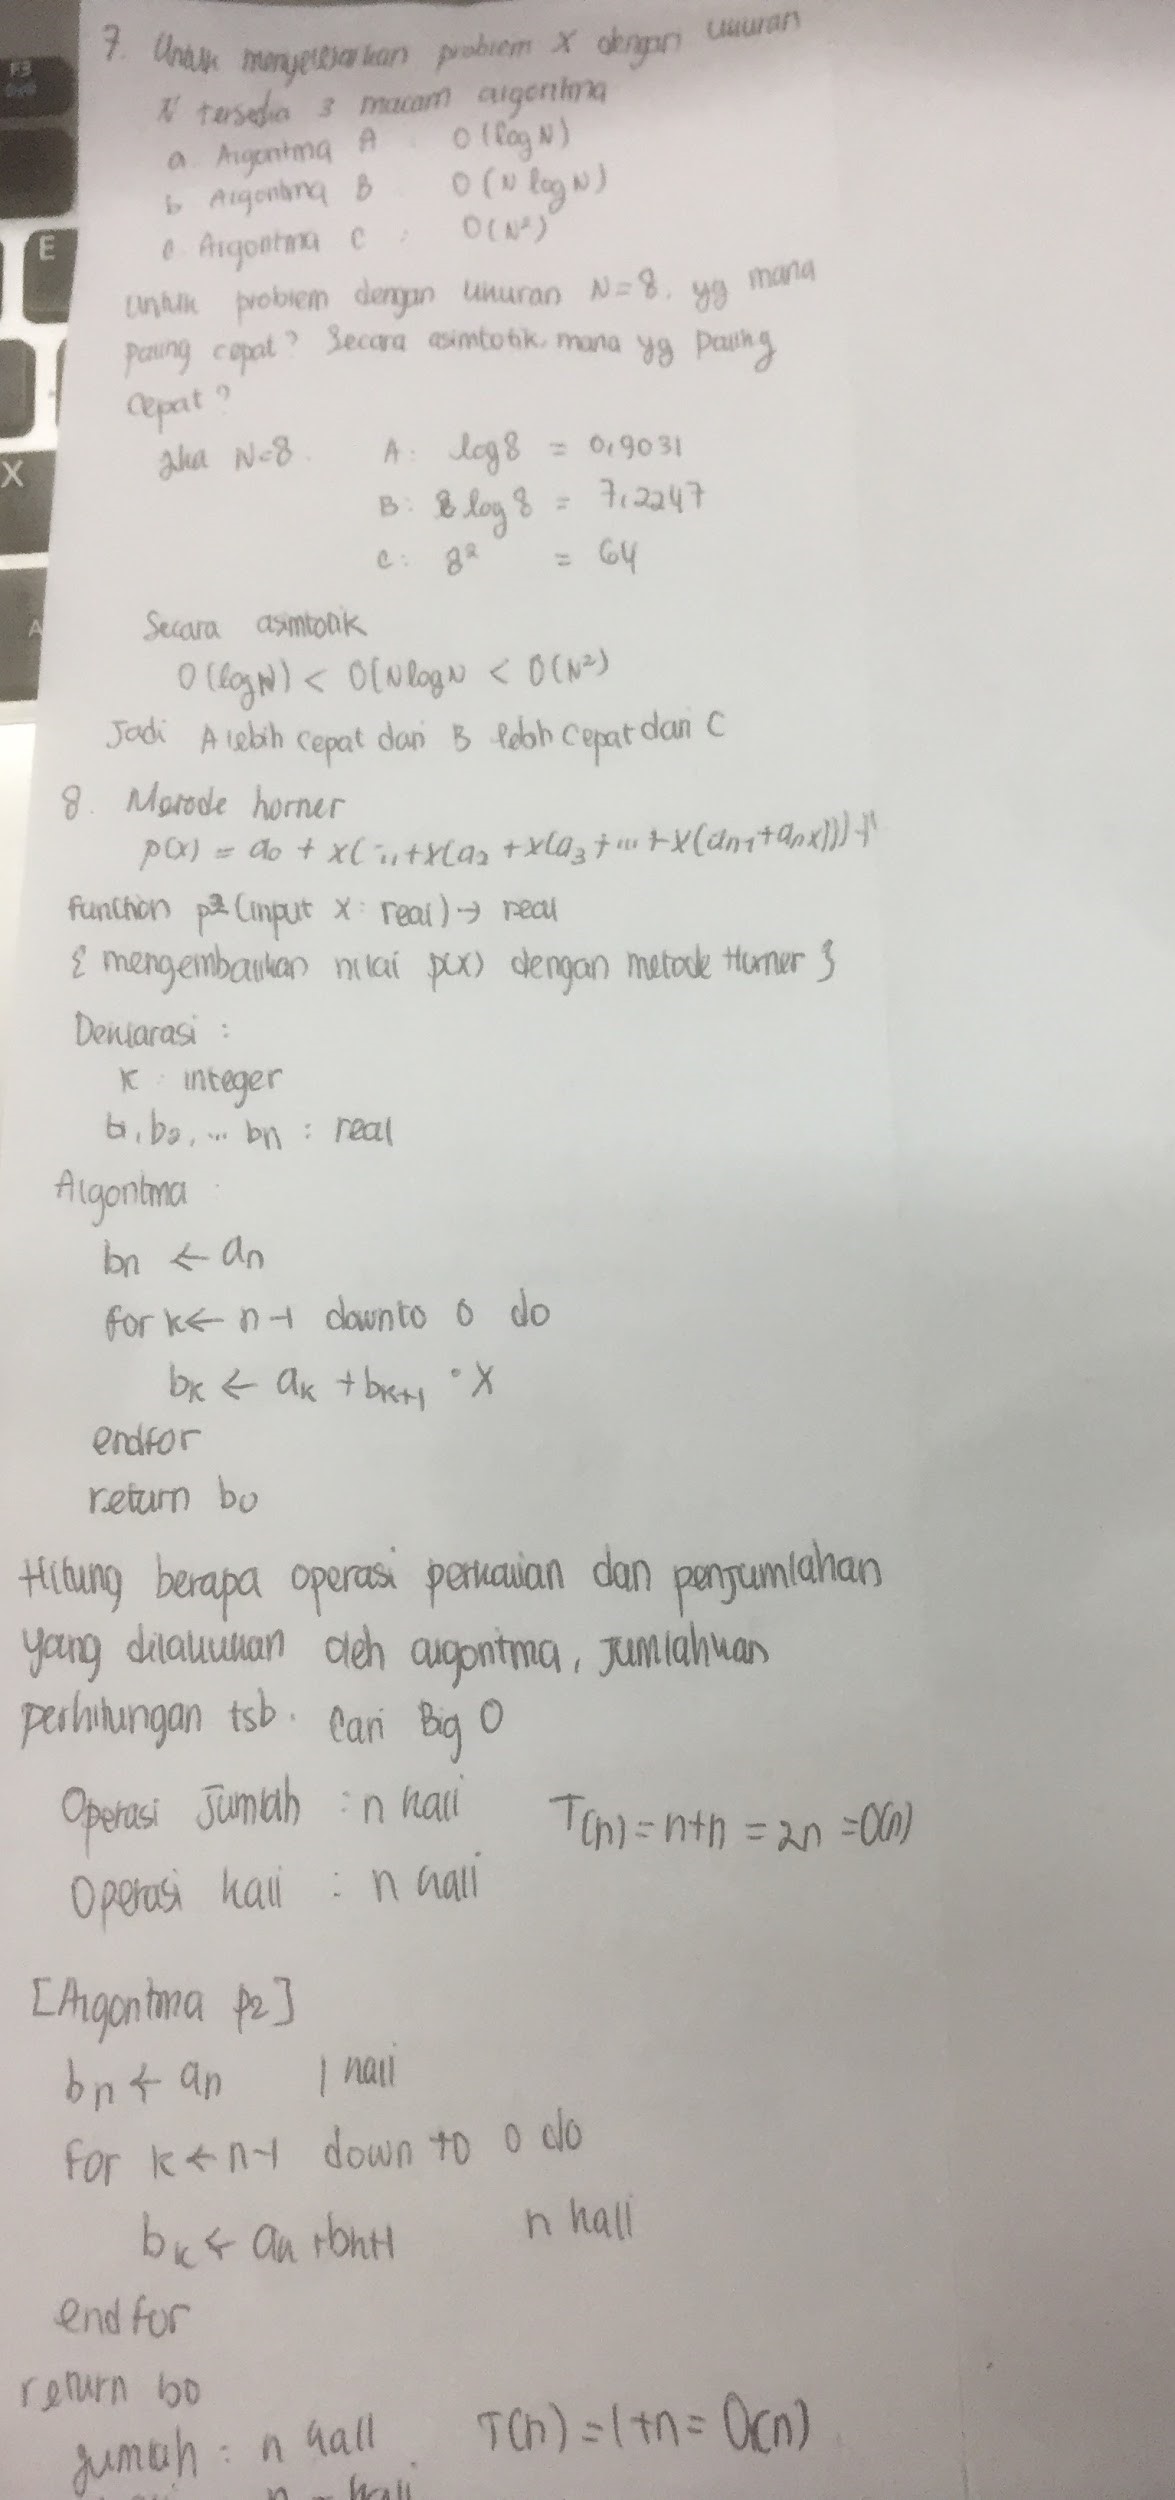 7. Untuk menyelesaikan problem X dengan ukuran
N tersedia 3 macam algoritma
a. Algoritma A : O(log N)
b. Algoritma B : O(N log N)
c. Algoritma C : O(N²)
Untuk problem dengan ukuran N=8, yg mana
paling cepat? Secara asimtotik, mana yg paling
cepat?
Jika N=8. A: log 8 = 0,9031
B: 8 log 8 = 7,2247
C: 8² = 64
Secara asimtotik
O(log N) < O(N log N < O(N²)
Jadi A lebih cepat dari B lebih cepat dari C
8. Metode horner
p(x) = a0 + x(...+x(a2 + x(a3 + ... + x(an-1 + anx))))
function p2 (input x : real) → real
{ mengembalikan nilai p(x) dengan metode Horner }
Deklarasi :
k : integer
b1, b2, ... bn : real
Algoritma :
bn ← an
for k ← n-1 downto 0 do
bk ← ak + bk+1 · x
endfor
return b0
Hitung berapa operasi perkalian dan penjumlahan
yang dilakukan oleh algoritma, Jumlahkan
perhitungan tsb. Cari Big O
Operasi Jumlah : n kali T(n) = n+n = 2n = O(n)
Operasi kali : n kali
[Algoritma p2]
bn ← an 1 kali
for k ← n-1 down to 0 do
bk ← ak + bk+1 n kali
endfor
return b0
jumlah : n kali T(n) = 1+n = O(n)
n kali